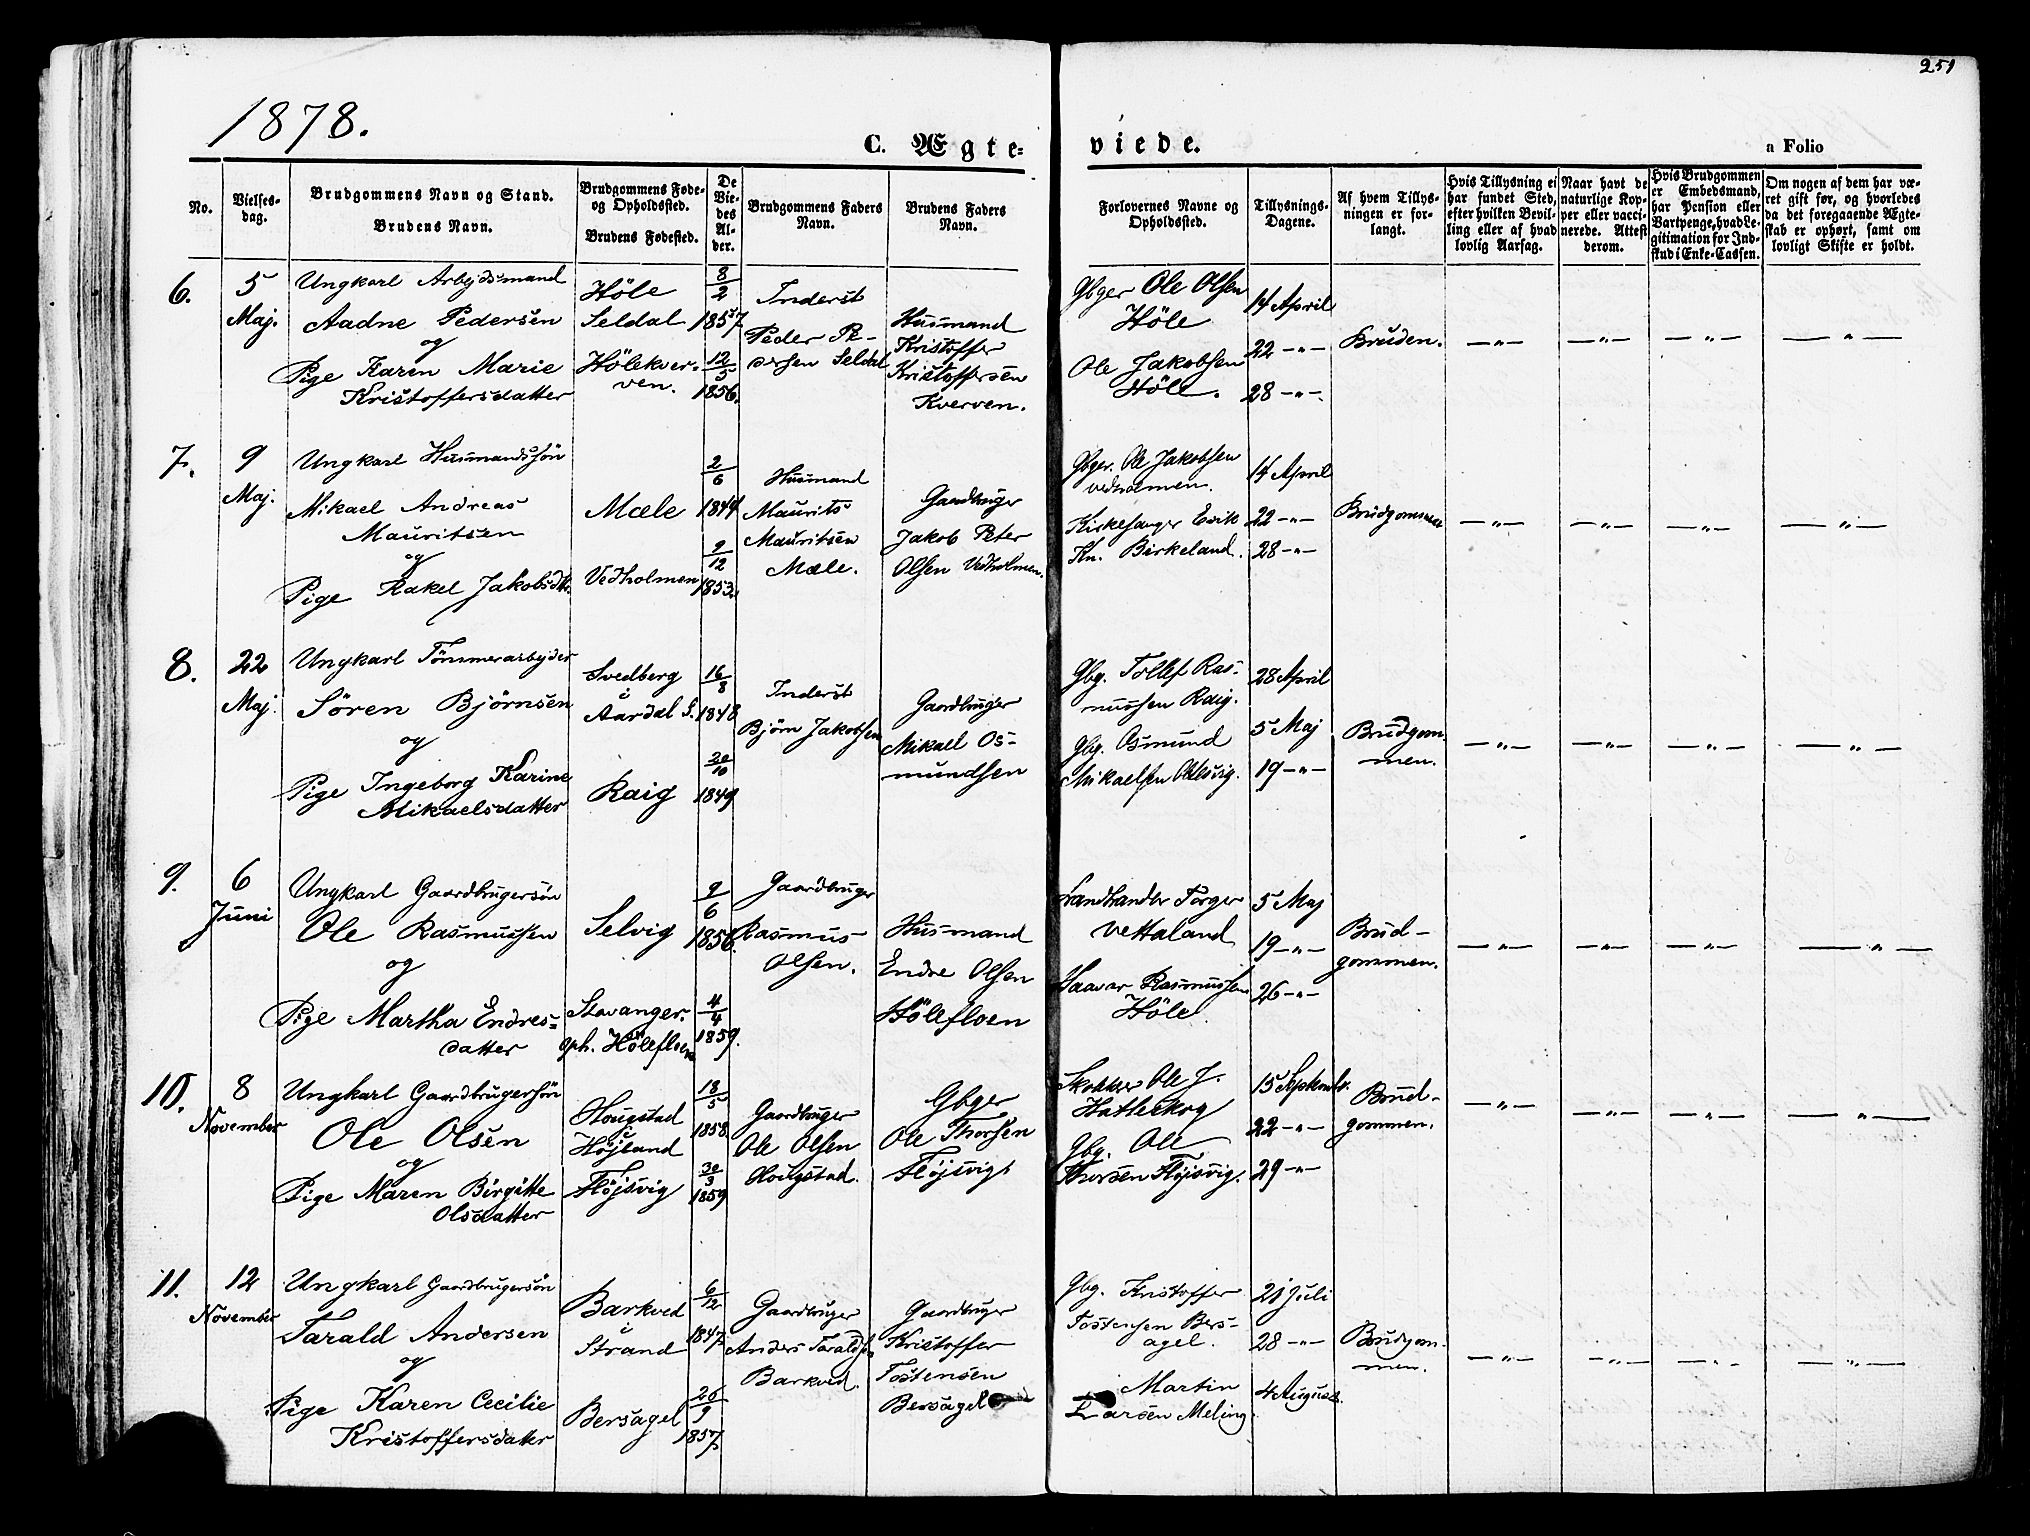 251
1878.
C. Ægte- viede.
a Folio
No.
Vielses-
dag.
Brudgommens Navn og Stand.
Brudens Navn.
Brudgommens Føde-
og Opholdssted.
Brudens Fødested.
De
Vie-
des
Al-
der.
Brudgommens Faders
Navn.
Brudens Faders
Navn.
Forlovernes Navne og
Opholdssted.
Tillysnings-
Dagene.
Af hvem Tillys-
ningen er for-
langt.
Hvis Tillysning ei
har fundet Sted,
efter hvilken Bevil-
ling eller af hvad
lovlig Aarsag.
Naar havt de
naturlige Kop-
per eller vacci-
nerede. Attest
derom.
Hvis Brudgommen
er Embedsmand,
har Pension eller
Vartpenge, hvad Le-
gitimation for Ind-
skud i Enke-Cassen.
Om nogen af dem har væ-
ret gift før, og hvorledes
da det foregaaende Ægte-
skab er ophørt, samt om
lovligt Skifte er holdt.
6.
5
Maj.
Ungkarl Arbejdsmand
Aadne Pedersen
og
Pige Karen Marie
Kristoffersdatter
Höle
Seldal
Hölekver-
ven.
8/2
1857
12/5
1856.
Inderst
Peder Pe-
dersen Seldal
Husmand
Kristoffer
Kristoffersen
Kverven.
Gbger Ole Olsen
Höle
Ole Jakobsen
Höle.
14 April
22 -"-
28 -"-
Bruden.
-"- -"- -"- -"-
7.
9
Maj.
Ungkarl Husmandssön
Mikael Andreas
Mauritsen
og
Pige Rakel Jakobsdtr.
Mæle
Vedholmen
2/6
1844
9/12
1853.
Husmand
Maurits
Mauritsen
Mæle.
Gaardbruger
Jakob Peter
Olsen Vedholmen.
Gbger. Ole Jakobsen
Vedholmen.
Kirkesanger Eerik
Kn. Birkeland.
14 April
22 -"-
28 -"-
Brudgommen
-"- -"- -"- -"-
8.
22
Maj.
Ungkarl Tömmerarbejder
Sören Björnsen
og
Pige Ingeborg Karine
Mikaelsdatter
Svedberg
i
Aardal S.
Raig
16/8
1848
30/10
1849
Inderst
Björn Jakobsen
Gaardbruger
Mikael Os-
mundsen
Gbg. Tollef Ras-
mussen Raig.
Gbg. Osmund
Mikaelsen
28 April
5 Maj
19 -"-
Brudgom-
men.
-"- -"- -"- -"-
9.
6
Juni
Ungkarl Gaardbrugersön
Ole Rasmussen
og
Pige Martha Endres-
datter
Selvig
Stavanger.
oph. Hölefloen
9/6
1856.
4/4
1859.
Gaardbruger
Rasmus
Olsen.
Husmand
Endre Olsen
Hölefloen
Landhandler Torger
Vettaland
Haavar Rasmussen
Höle
5 Maj
19 -"-
26 -"-
Brud-
gommen.
-"- -"- -"- -"-
10.
8
November
Ungkarl Gaardbrugersön
Ole Olsen
og
Pige Maren Birgitte
Olsdatter
Hougstad
i
Höjland
Flöjsvig
18/5
1858.
30/3
1859
Gaardbruger
Ole Olsen
Hougstad.
Gbger
Ole Thorsen
Flöjsvig
Ole J.
Hatleskog
Gbg. Ole
Thorsen Flöjsvig.
15 Septembr.
22 -"-
29 -"-
Brud-
gommen.
-"- -"- -"- -"-
11.
12
November
Ungkarl Gaardbrugersön
Tarald Andersen
og
Pige Karen Cecilie
Kristoffersdatter
Barkved
i
Strand
Bersagel
6/12
1847.
26/9
1857.
Gaardbruger
Anders Taraldsen
Barkved.
Gaardbruger
Kristoffer
Tostensen
Bersagel
Gbg. Kristoffer
Tostensen Bers-
agel.
Martin
Larsen Meling.
21 Juli
28 -"-
4 August.
Brudgom-
men.
-"- -"- -"- -"-